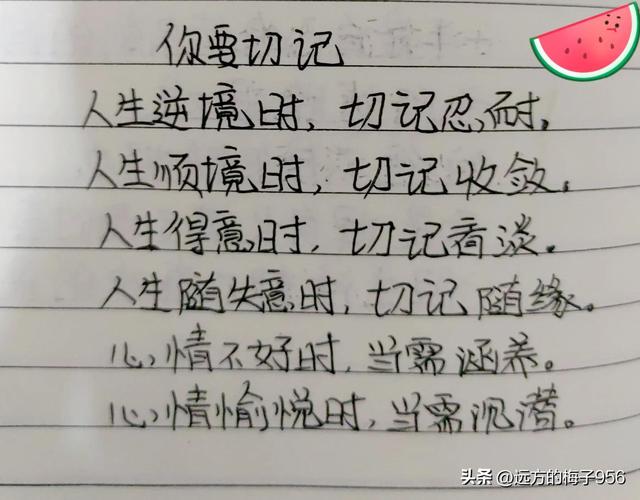 你要切记
人生逆境时，切记忍耐，
人生顺境时，切记收敛。
人生得意时，切记看淡。
人生随失意时，切记随缘。
心情不好时，当需涵养。
心情愉悦时，当需沉潜。
头条 @远方的梅子956